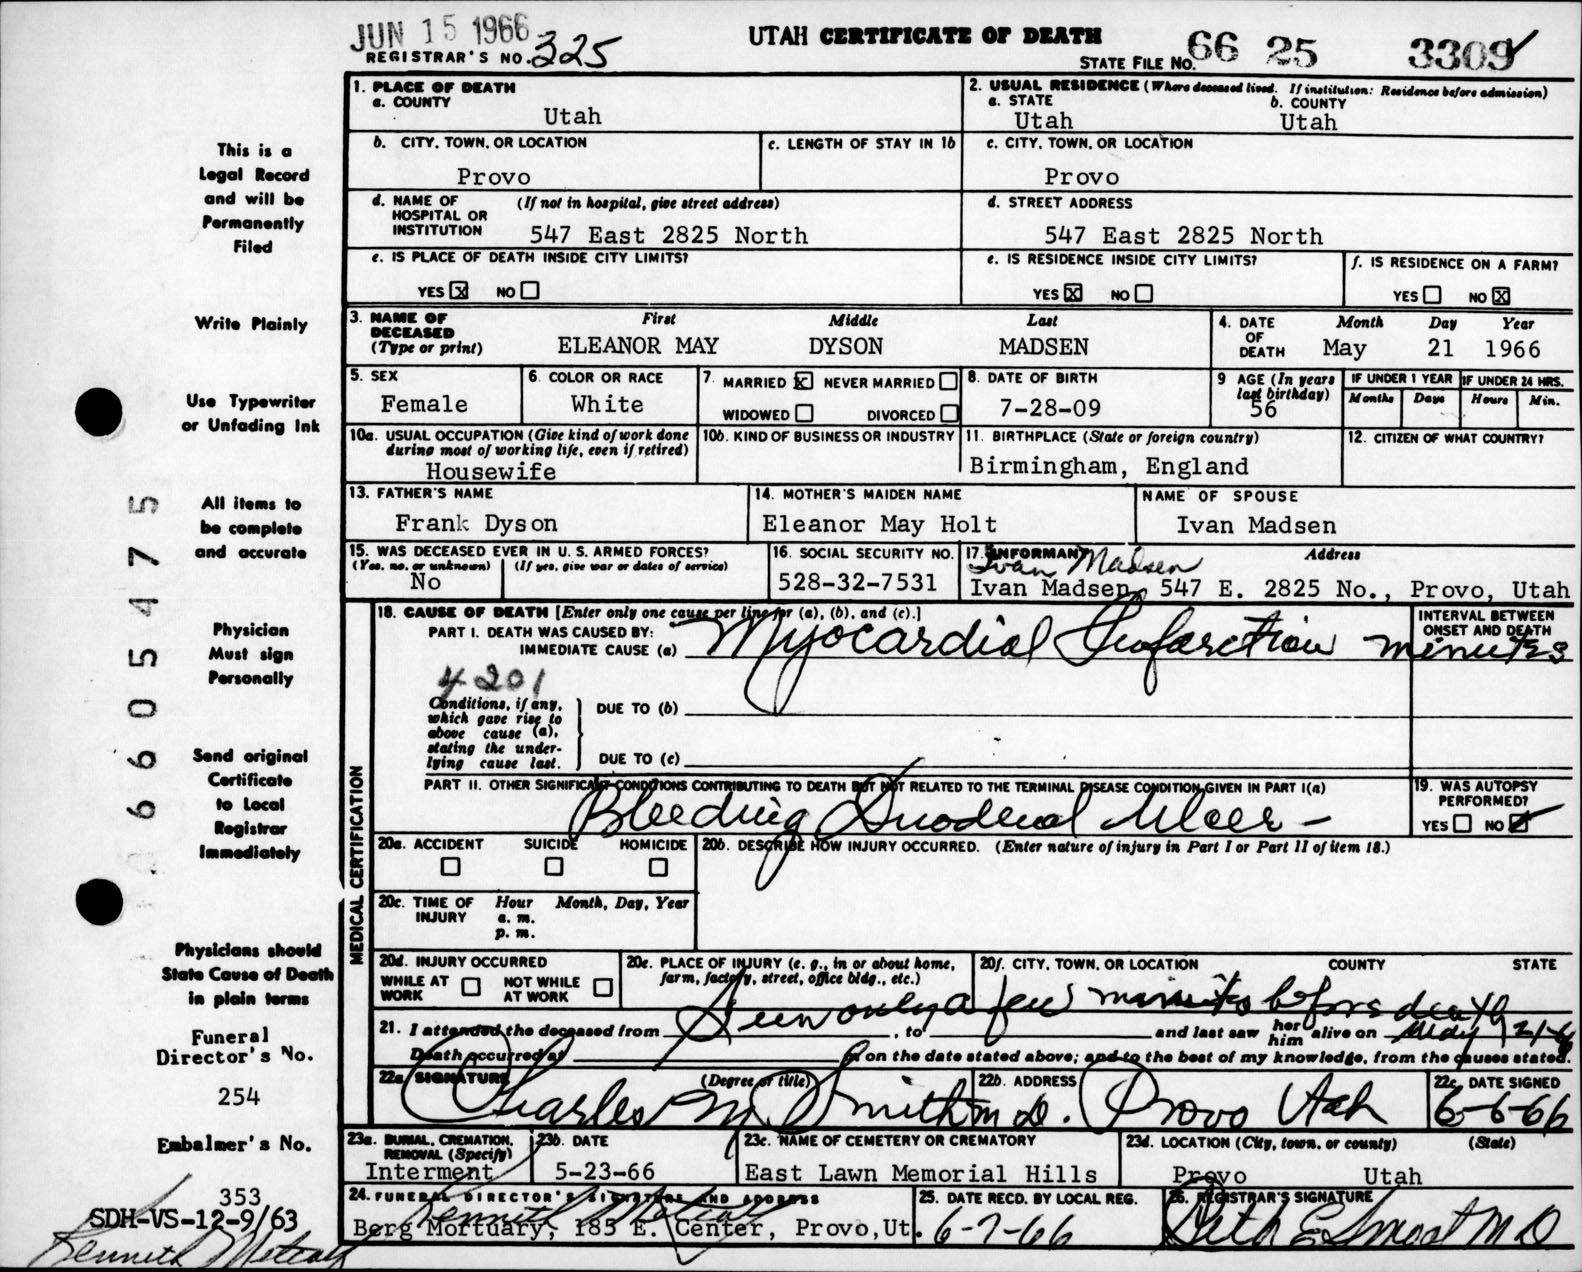 JUN 15 1966
REGISTRAR'S NO. 325
UTAH CERTIFICATE OF DEATH
STATE FILE NO. 66 25 3309
This is a
Legal Record
and will be
Permanently
Filed
Write Plainly
Use Typewriter
or Unfading Ink
All items to
be complete
and accurate
Physician
Must sign
Personally
Send original
Certificate
to Local
Registrar
Immediately
Physicians should
State Cause of Death
in plain terms
Funeral
Director's No.
254
Embalmer's No.
353
SDH-VS-12-9/63
Kenneth Metcalf
6605475
1. PLACE OF DEATH
a. COUNTY
Utah
2. USUAL RESIDENCE (Where deceased lived. If institution: Residence before admission)
a. STATE b. COUNTY
Utah Utah
b. CITY, TOWN, OR LOCATION
Provo
c. LENGTH OF STAY IN 1b
c. CITY, TOWN, OR LOCATION
Provo
d. NAME OF (If not in hospital, give street address)
HOSPITAL OR
INSTITUTION 547 East 2825 North
d. STREET ADDRESS
547 East 2825 North
e. IS PLACE OF DEATH INSIDE CITY LIMITS?
YES X NO
e. IS RESIDENCE INSIDE CITY LIMITS?
YES X NO
f. IS RESIDENCE ON A FARM?
YES NO X
3. NAME OF First Middle Last
DECEASED
(Type or print) ELEANOR MAY DYSON MADSEN
4. DATE Month Day Year
OF
DEATH May 21 1966
5. SEX
Female
6. COLOR OR RACE
White
7. MARRIED X NEVER MARRIED
WIDOWED DIVORCED
8. DATE OF BIRTH
7-28-09
9 AGE (In years
last birthday)
56
IF UNDER 1 YEAR
Months Days
IF UNDER 24 HRS.
Hours Min.
10a. USUAL OCCUPATION (Give kind of work done
during most of working life, even if retired)
Housewife
10b. KIND OF BUSINESS OR INDUSTRY
11. BIRTHPLACE (State or foreign country)
Birmingham, England
12. CITIZEN OF WHAT COUNTRY?
13. FATHER'S NAME
Frank Dyson
14. MOTHER'S MAIDEN NAME
Eleanor May Holt
NAME OF SPOUSE
Ivan Madsen
15. WAS DECEASED EVER IN U. S. ARMED FORCES?
(Yes, no, or unknown) (If yes, give war or dates of service)
No
16. SOCIAL SECURITY NO.
528-32-7531
17. INFORMANT Address
Ivan Madsen
Ivan Madsen, 547 E. 2825 No., Provo, Utah
MEDICAL CERTIFICATION
18. CAUSE OF DEATH [Enter only one cause per line for (a), (b), and (c).]
PART I. DEATH WAS CAUSED BY:
IMMEDIATE CAUSE (a) Myocardial Infarction
INTERVAL BETWEEN
ONSET AND DEATH
minutes
4201
Conditions, if any,
which gave rise to
above cause (a),
stating the under-
lying cause last.
DUE TO (b)
DUE TO (c)
PART II. OTHER SIGNIFICANT CONDITIONS CONTRIBUTING TO DEATH BUT NOT RELATED TO THE TERMINAL DISEASE CONDITION GIVEN IN PART I(a)
Bleeding Duodenal Ulcer -
19. WAS AUTOPSY
PERFORMED?
YES NO
20a. ACCIDENT SUICIDE HOMICIDE
20b. DESCRIBE HOW INJURY OCCURRED. (Enter nature of injury in Part I or Part II of item 18.)
20c. TIME OF Hour Month, Day, Year
INJURY a. m.
p. m.
20d. INJURY OCCURRED
WHILE AT NOT WHILE
WORK AT WORK
20e. PLACE OF INJURY (e. g., in or about home,
farm, factory, street, office bldg., etc.)
20f. CITY, TOWN, OR LOCATION COUNTY STATE
Seen only a few minutes before death
21. I attended the deceased from , to and last saw her him alive on May 21-66
Death occurred at on the date stated above; and to the best of my knowledge, from the causes stated.
22a SIGNATURE (Degree or title)
Charles M Smith M D.
22b. ADDRESS
Provo Utah
22c. DATE SIGNED
6-6-66
23a. BURIAL, CREMATION,
REMOVAL (Specify)
Interment
23b. DATE
5-23-66
23c. NAME OF CEMETERY OR CREMATORY
East Lawn Memorial Hills
23d. LOCATION (City, town, or county) (State)
Provo Utah
24. FUNERAL DIRECTOR'S SIGNATURE AND ADDRESS
Kenneth Metcalf
Berg Mortuary, 185 E. Center, Provo, Ut.
25. DATE RECD. BY LOCAL REG.
6-7-66
26. REGISTRAR'S SIGNATURE
M D